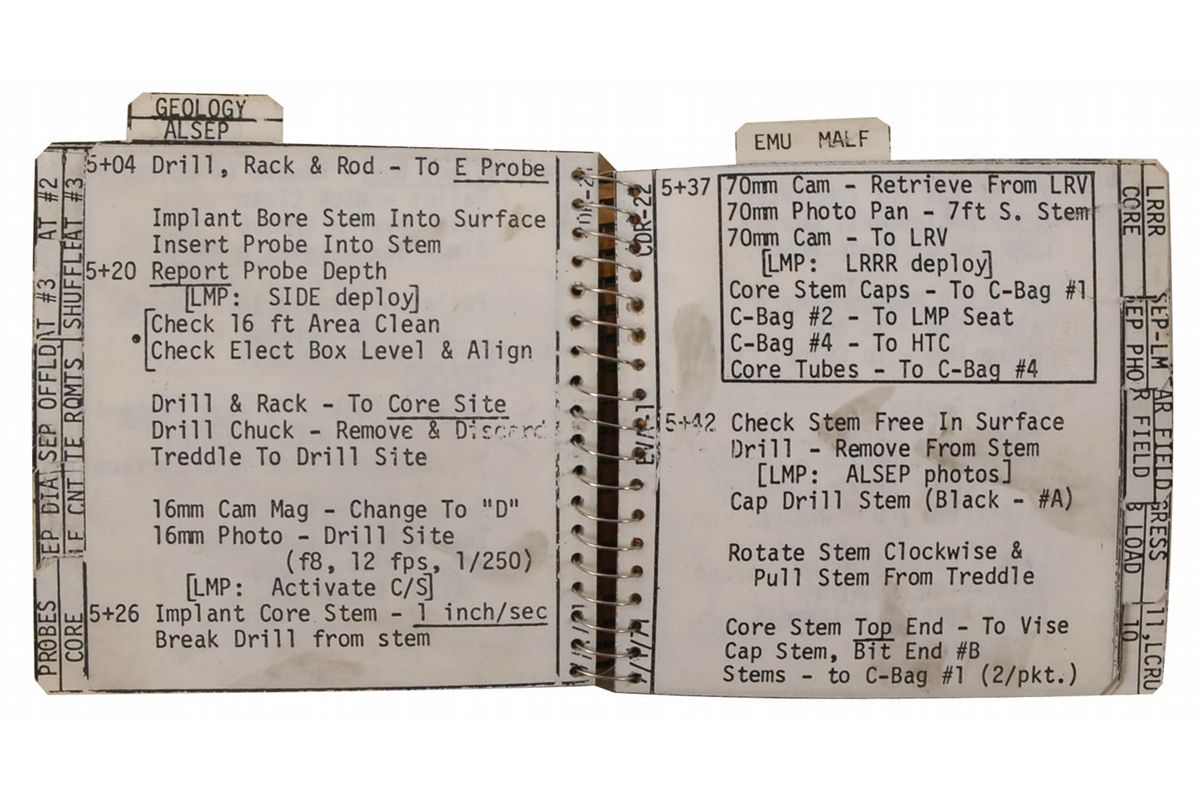 GEOLOGY
ALSEP
5+04 Drill, Rack & Rod - To E Probe
Implant Bore Stem Into Surface
Insert Probe Into Stem
5+20 Report Probe Depth
[LMP: SIDE deploy]
Check 16 ft Area Clean
Check Elect Box Level & Align
Drill & Rack - To Core Site
Drill Chuck - Remove & Discard
Treddle To Drill Site
16mm Cam Mag - Change To "D"
16mm Photo - Drill Site
(f8, 12 fps, 1/250)
[LMP: Activate C/S]
5+26 Implant Core Stem - 1 inch/sec
Break Drill from stem
AT #2
AT #3
SHUFFLE
AT #3
OFFLD
RQMTS
CNT
PROBES
CORE
EMU MALF
CDR-22
EVA-1
5+37 70mm Cam - Retrieve From LRV
70mm Photo Pan - 7ft S. Stem
70mm Cam - To LRV
[LMP: LRRR deploy]
Core Stem Caps - To C-Bag #1
C-Bag #2 - To LMP Seat
C-Bag #4 - To HTC
Core Tubes - To C-Bag #4
5+42 Check Stem Free In Surface
Drill - Remove From Stem
[LMP: ALSEP photos]
Cap Drill Stem (Black - #A)
Rotate Stem Clockwise &
Pull Stem From Treddle
Core Stem Top End - To Vise
Cap Stem, Bit End #B
Stems - to C-Bag #1 (2/pkt.)
LRRR
CORE
FIELD
FIELD
LOAD
11,LCRU
10